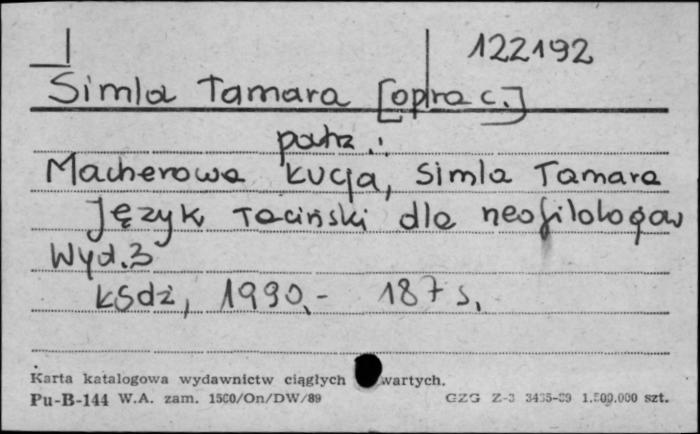 122192
Simla Tamara [oprac.]
patrz:
Macherowa Łucja, Simla Tamara
Język łaciński dla neofilologów
Wyd. 3
Łódź, 1990.- 187 s.
Karta katalogowa wydawnictw ciągłych wartych.
Pu-B-144 W.A. zam. 1560/On/DW/89 GZG Z-3 3435-89 1.500.000 szt.